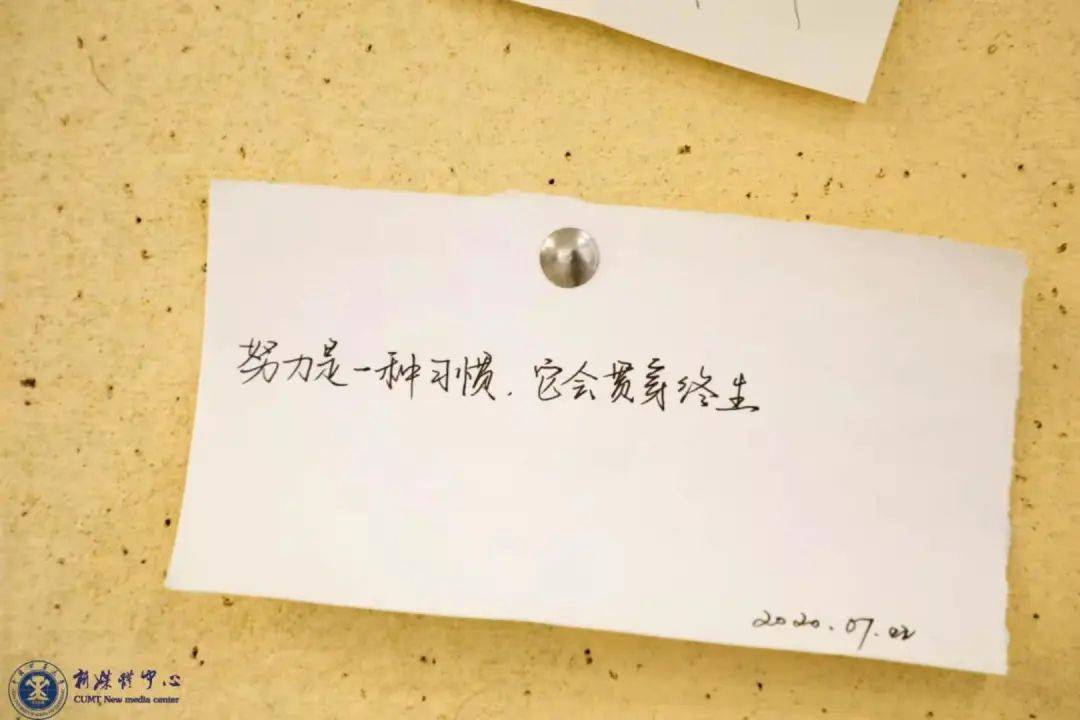 努力是一种习惯，它会贯穿终生
2020.07.02
新媒体中心
CUMT New media center